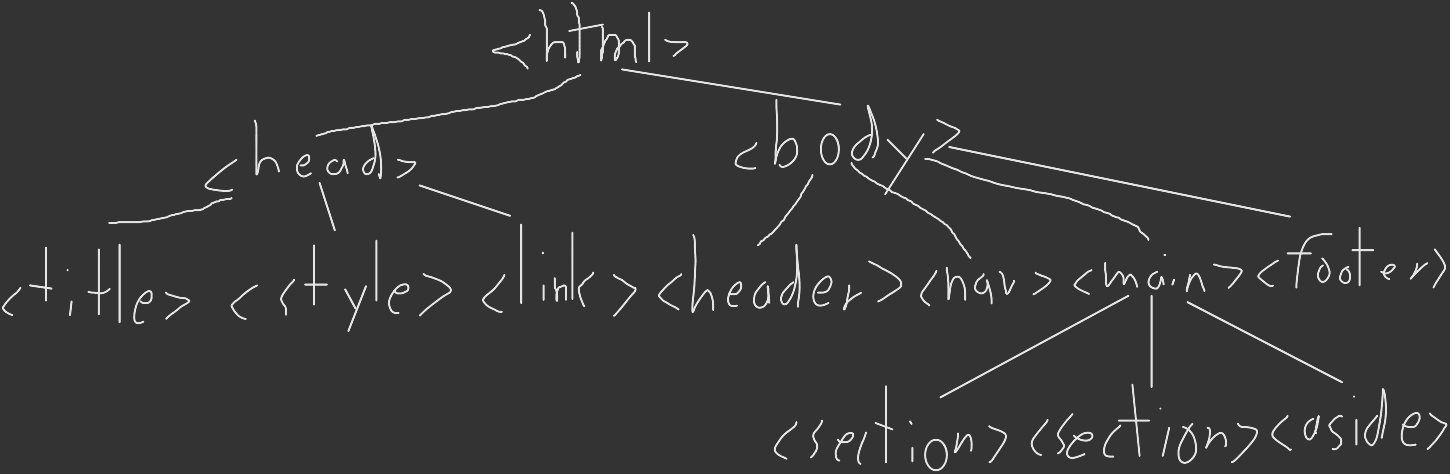 <html>
<head> <body>
<title> <style> <link> <header> <nav> <main> <footer>
<section> <section> <aside>